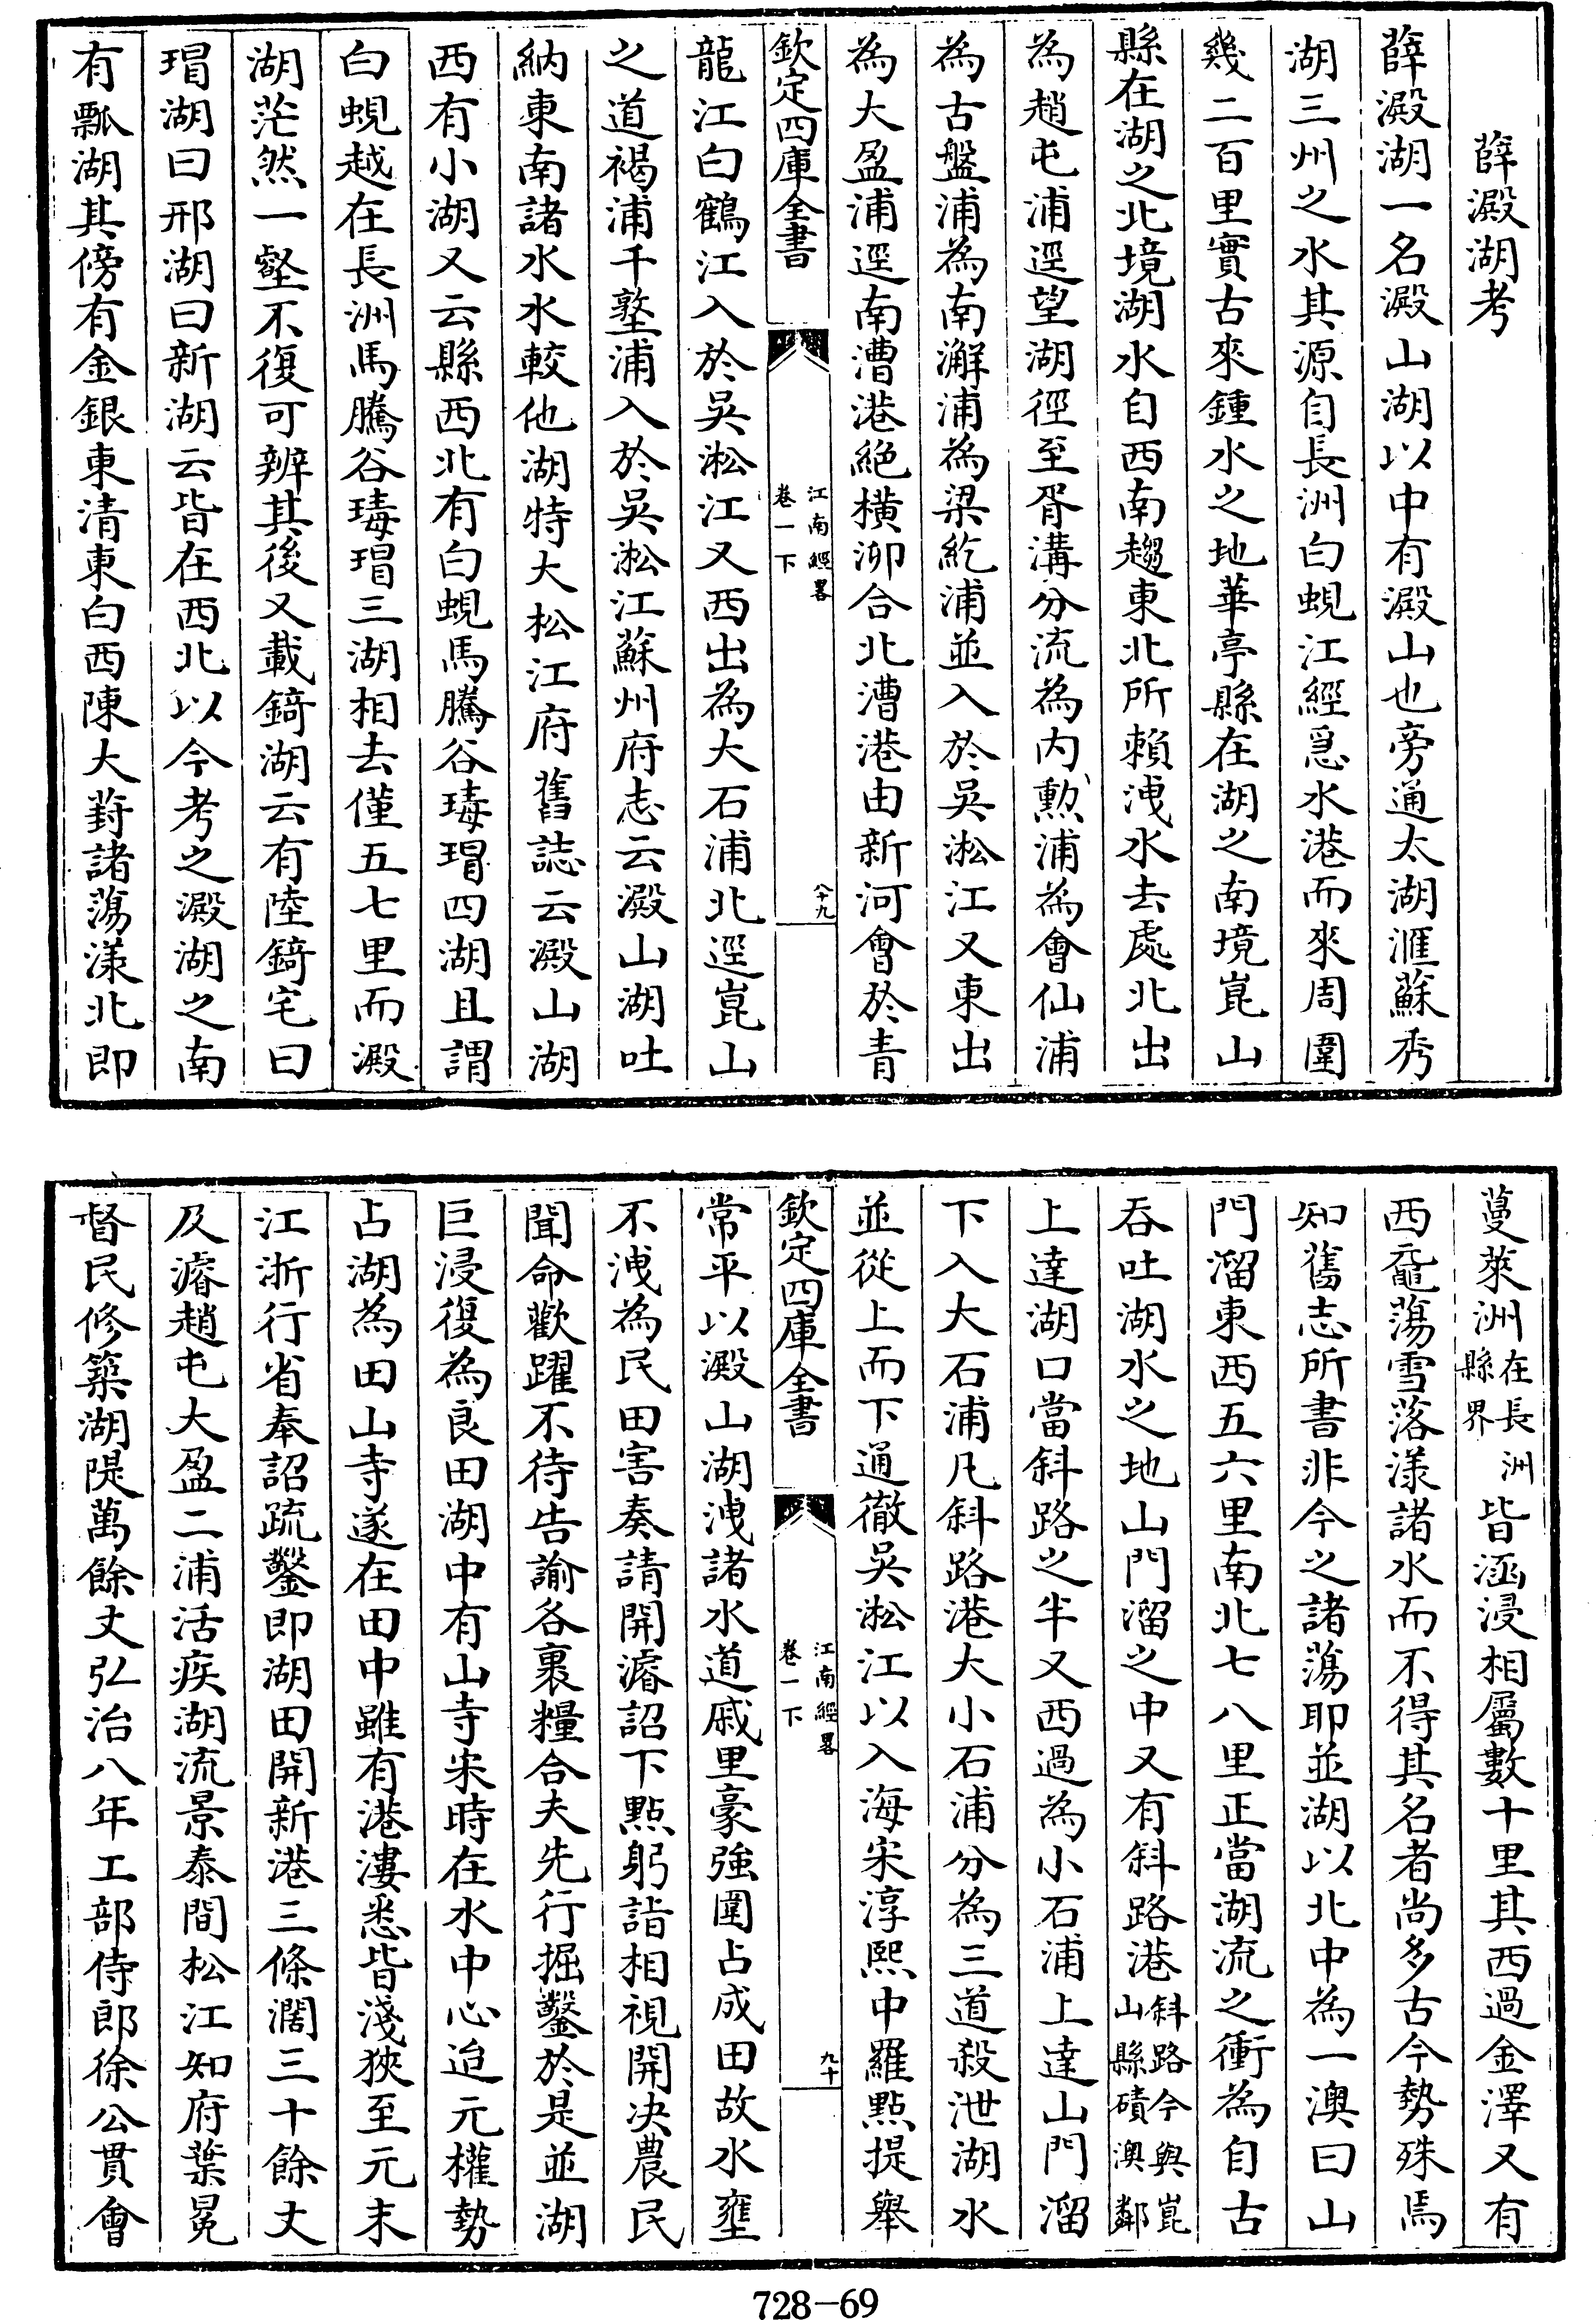 薛澱湖考
薛澱湖一名澱山湖以中有澱山也旁通太湖滙蘇秀
湖三州之水其源自長洲白蜆江經急水港而來周圍
幾二百里實古來鍾水之地華亭縣在湖之南境崑山
縣在湖之北境湖水自西南趨東北所賴洩水去處北出
為趙屯浦逕望湖徑至胥溝分流為内勲浦為會仙浦
為古盤浦為南澥浦為梁紇浦並入於吳淞江又東出
為大盈浦逕南漕港絕橫泖合北漕港由新河會於青
欽定四庫全書
江南經畧
卷一下
八十九
龍江白鶴江入於吳淞江又西出為大石浦北逕崑山
之道褐浦千墪浦入於吳淞江蘇州府志云澱山湖吐
納東南諸水水較他湖特大松江府舊誌云澱山湖
西有小湖又云縣西北有白蜆馬騰谷瑇瑁四湖且謂
白蜆越在長洲馬騰谷瑇瑁三湖相去僅五七里而澱
湖茫然一壑不復可辨其後又載錡湖云有陸錡宅曰
瑁湖曰邢湖曰新湖云皆在西北以今考之澱湖之南
有瓢湖其傍有金銀東清東白西陳大葑諸蕩漾北即
蔓萊洲在長洲縣界皆涵浸相屬數十里其西過金澤又有
西黿蕩雪落漾諸水而不得其名者尚多古今勢殊馬
知舊志所書非今之諸蕩耶並湖以北中為一澳曰山
門溜東西五六里南北七八里正當湖流之衝為自古
吞吐湖水之地山門溜之中又有斜路港斜路今與崑山縣磧澳鄰
上達湖口當斜路之半又西過為小石浦上達山門溜
下入大石浦凡斜路港大小石浦分為三道殺泄湖水
並從上而下通徹吳淞江以入海宋淳熙中羅點提舉
欽定四庫全書
江南經畧
卷一下
九十
常平以澱山湖洩諸水道戚里豪強圍占成田故水壅
不洩為民田害奏請開濬詔下點躬詣相視開决農民
聞命歡躍不待告諭各裹糧合夫先行掘鑿於是並湖
巨浸復為良田湖中有山寺宋時在水中心迨元權勢
占湖為田山寺遂在田中雖有港漊悉皆淺狹至元末
江浙行省奉詔疏鑿即湖田開新港三條濶三十餘丈
及濬趙屯大盈二浦活疾湖流景泰間松江知府葉冕
督民修築湖隄萬餘丈弘治八年工部侍郎徐公貫會
728-69